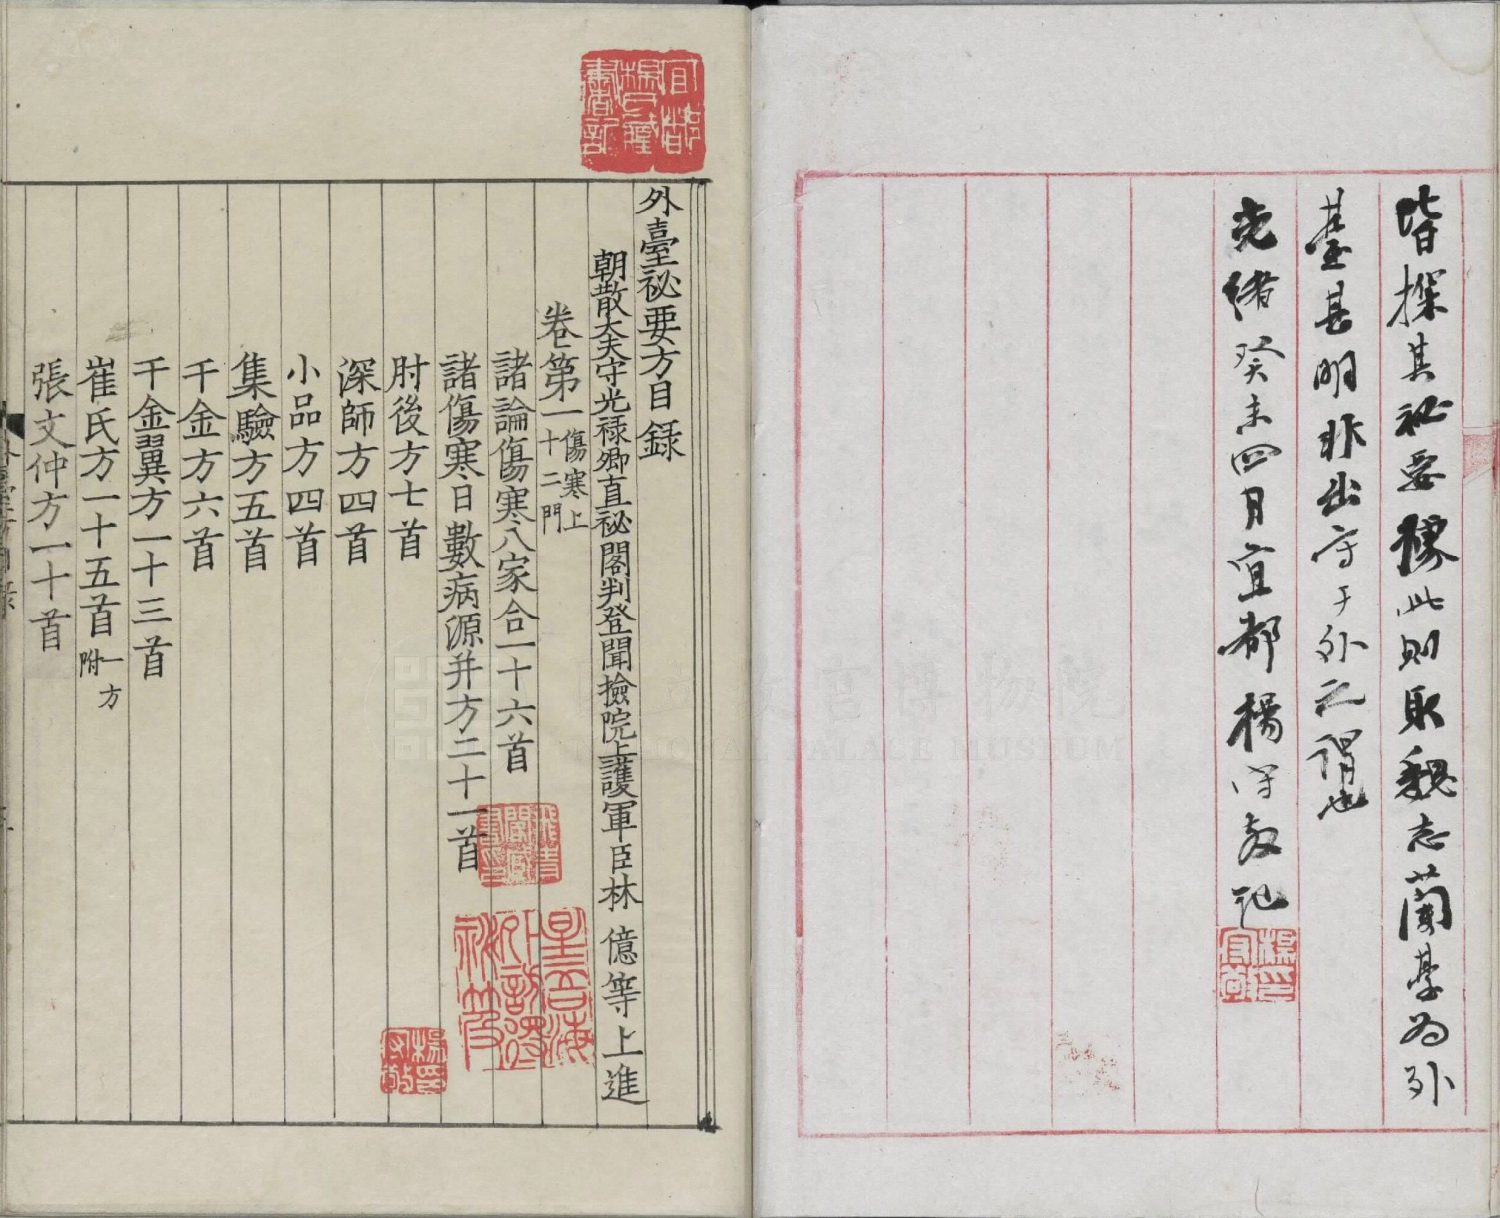 皆探其祕要據此則取魏志蘭臺為外
臺甚明非出守于外之謂也
光緒癸未四月宜都楊守敬記
楊印守敬
宜都楊氏藏書記
外臺祕要方目錄
朝散大夫守光祿卿直祕閣判登聞撿院上護軍臣林億等上進
卷第一傷寒上一十二門
諸論傷寒八家合一十六首
諸傷寒日數病源并方二十一首
肘後方七首
深師方四首
小品方四首
集驗方五首
千金方六首
千金翼方一十三首
崔氏方一十五首附一方
張文仲方一十首
飛青閣藏書印
星吾海外訪得祕笈
楊印守敬
國立故宮博物院
NATIONAL PALACE MUSEUM